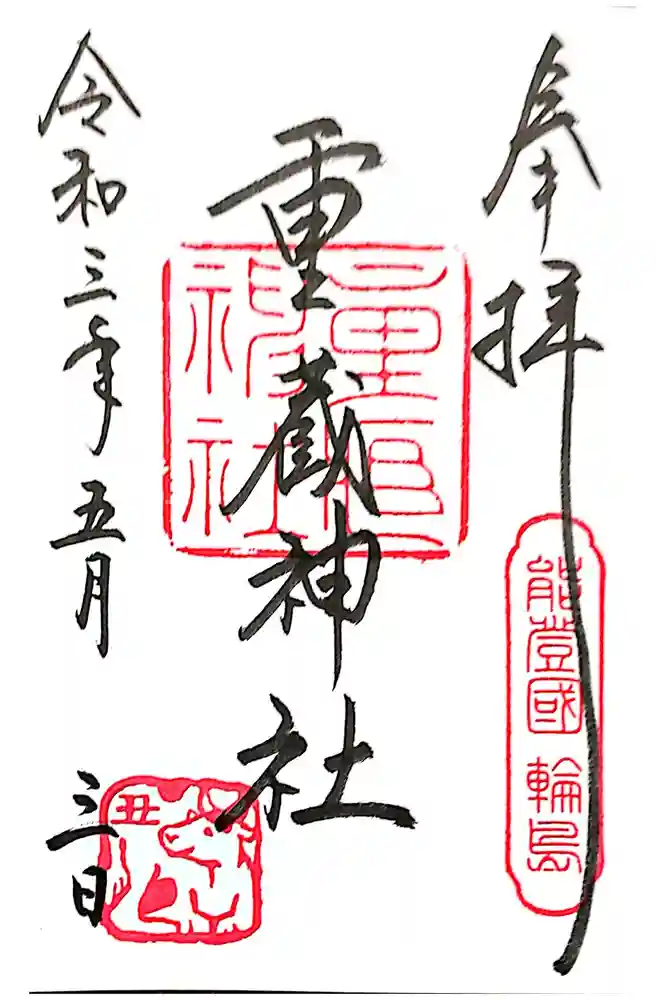 奉拝
能登國 輪島
重蔵神社
重蔵神社
令和三年五月三日
丑